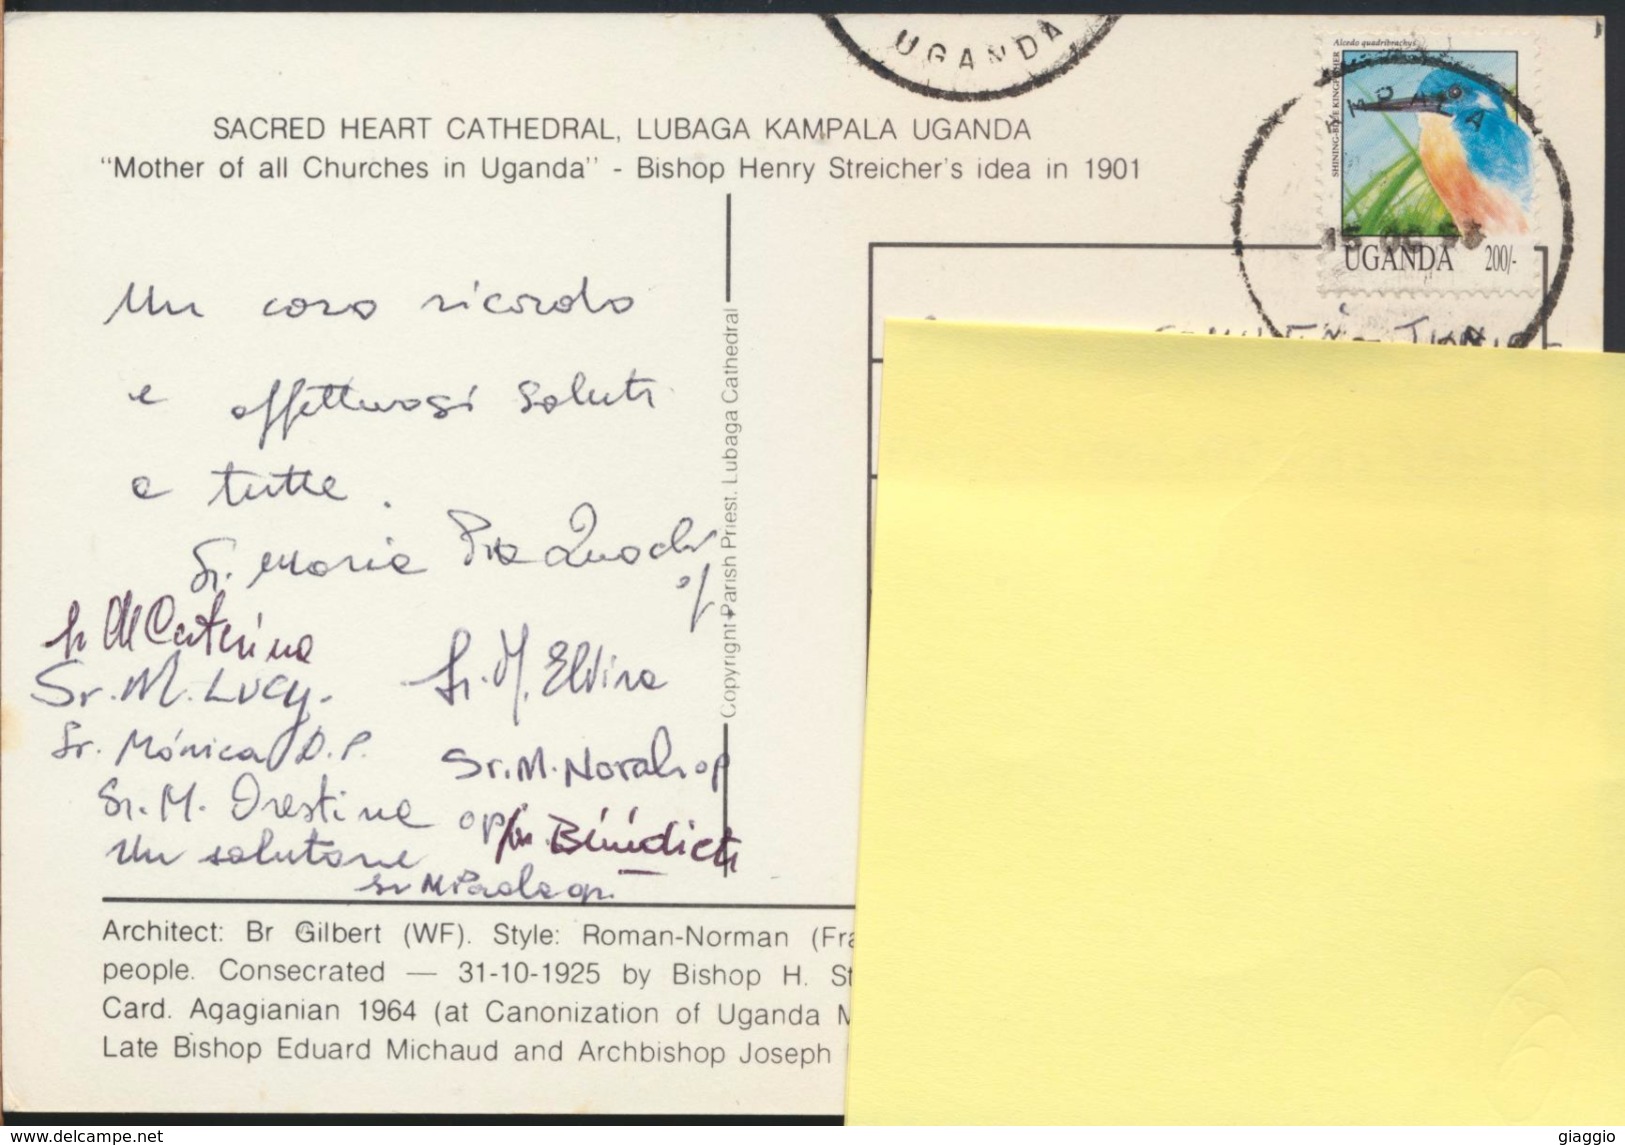 UGANDA
Alcedo quadribrachys
SHINING-BLUE KINGFISHER
UGANDA 200/-
SACRED HEART CATHEDRAL, LUBAGA KAMPALA UGANDA
"Mother of all Churches in Uganda" - Bishop Henry Streicher's idea in 1901
Un caro ricordo
e affettuosi saluti
a tutte.
Sr. Maria Pia
op
Sr M Caterina
Sr. M. Elvira
Sr. M. Lucy.
Sr. Mónica O.P.
Sr. M. Norah op
Sr. M. Orestina op
Sr. Bénédicte
Un salutone
Sr M Paola op.
Copyright Parish Priest. Lubaga Cathedral
Architect: Br Gilbert (WF). Style: Roman-Norman (Fra
people. Consecrated — 31-10-1925 by Bishop H. St
Card. Agagianian 1964 (at Canonization of Uganda M
Late Bishop Eduard Michaud and Archbishop Joseph
giaggio
www.delcampe.net